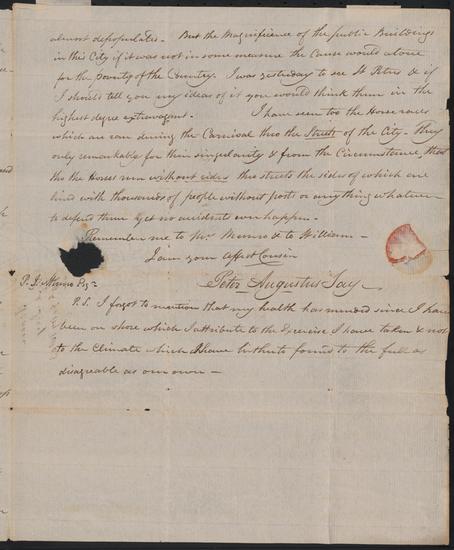 almost depopulates. But the Magnificence of the public Buildings
in this City if it was not in some measure the Cause would atone
for the poverty of the Country. I was yesterday to see St Peters & if
I should tell you my ideas of it you would think them in the
highest degree extravagant. I have seen too the Horse races
which are ran during the Carnival thro the Streets of the City. They
only remarkable for their singularity & from the Circumstance, that
tho the Horses run without riders thro streets the sides of which are
lined with thousands of people without posts or any thing whatever
to defend them yet no accidents ever happen.
Remember me to Mrs Munro & to William —
I am your affect Cousin
Peter Augustus Jay —
P. J. Munro Esq
P.S. I forgot to mention that my health has mended since I have
been on shore which I attribute to the Exercise I have taken & not
to the Climate which I have hitherto found to the full as
disagreable as our own —